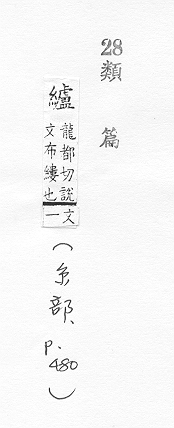 28類篇
纑
龍都切說文
文布縷也一
(糸部、p.480)